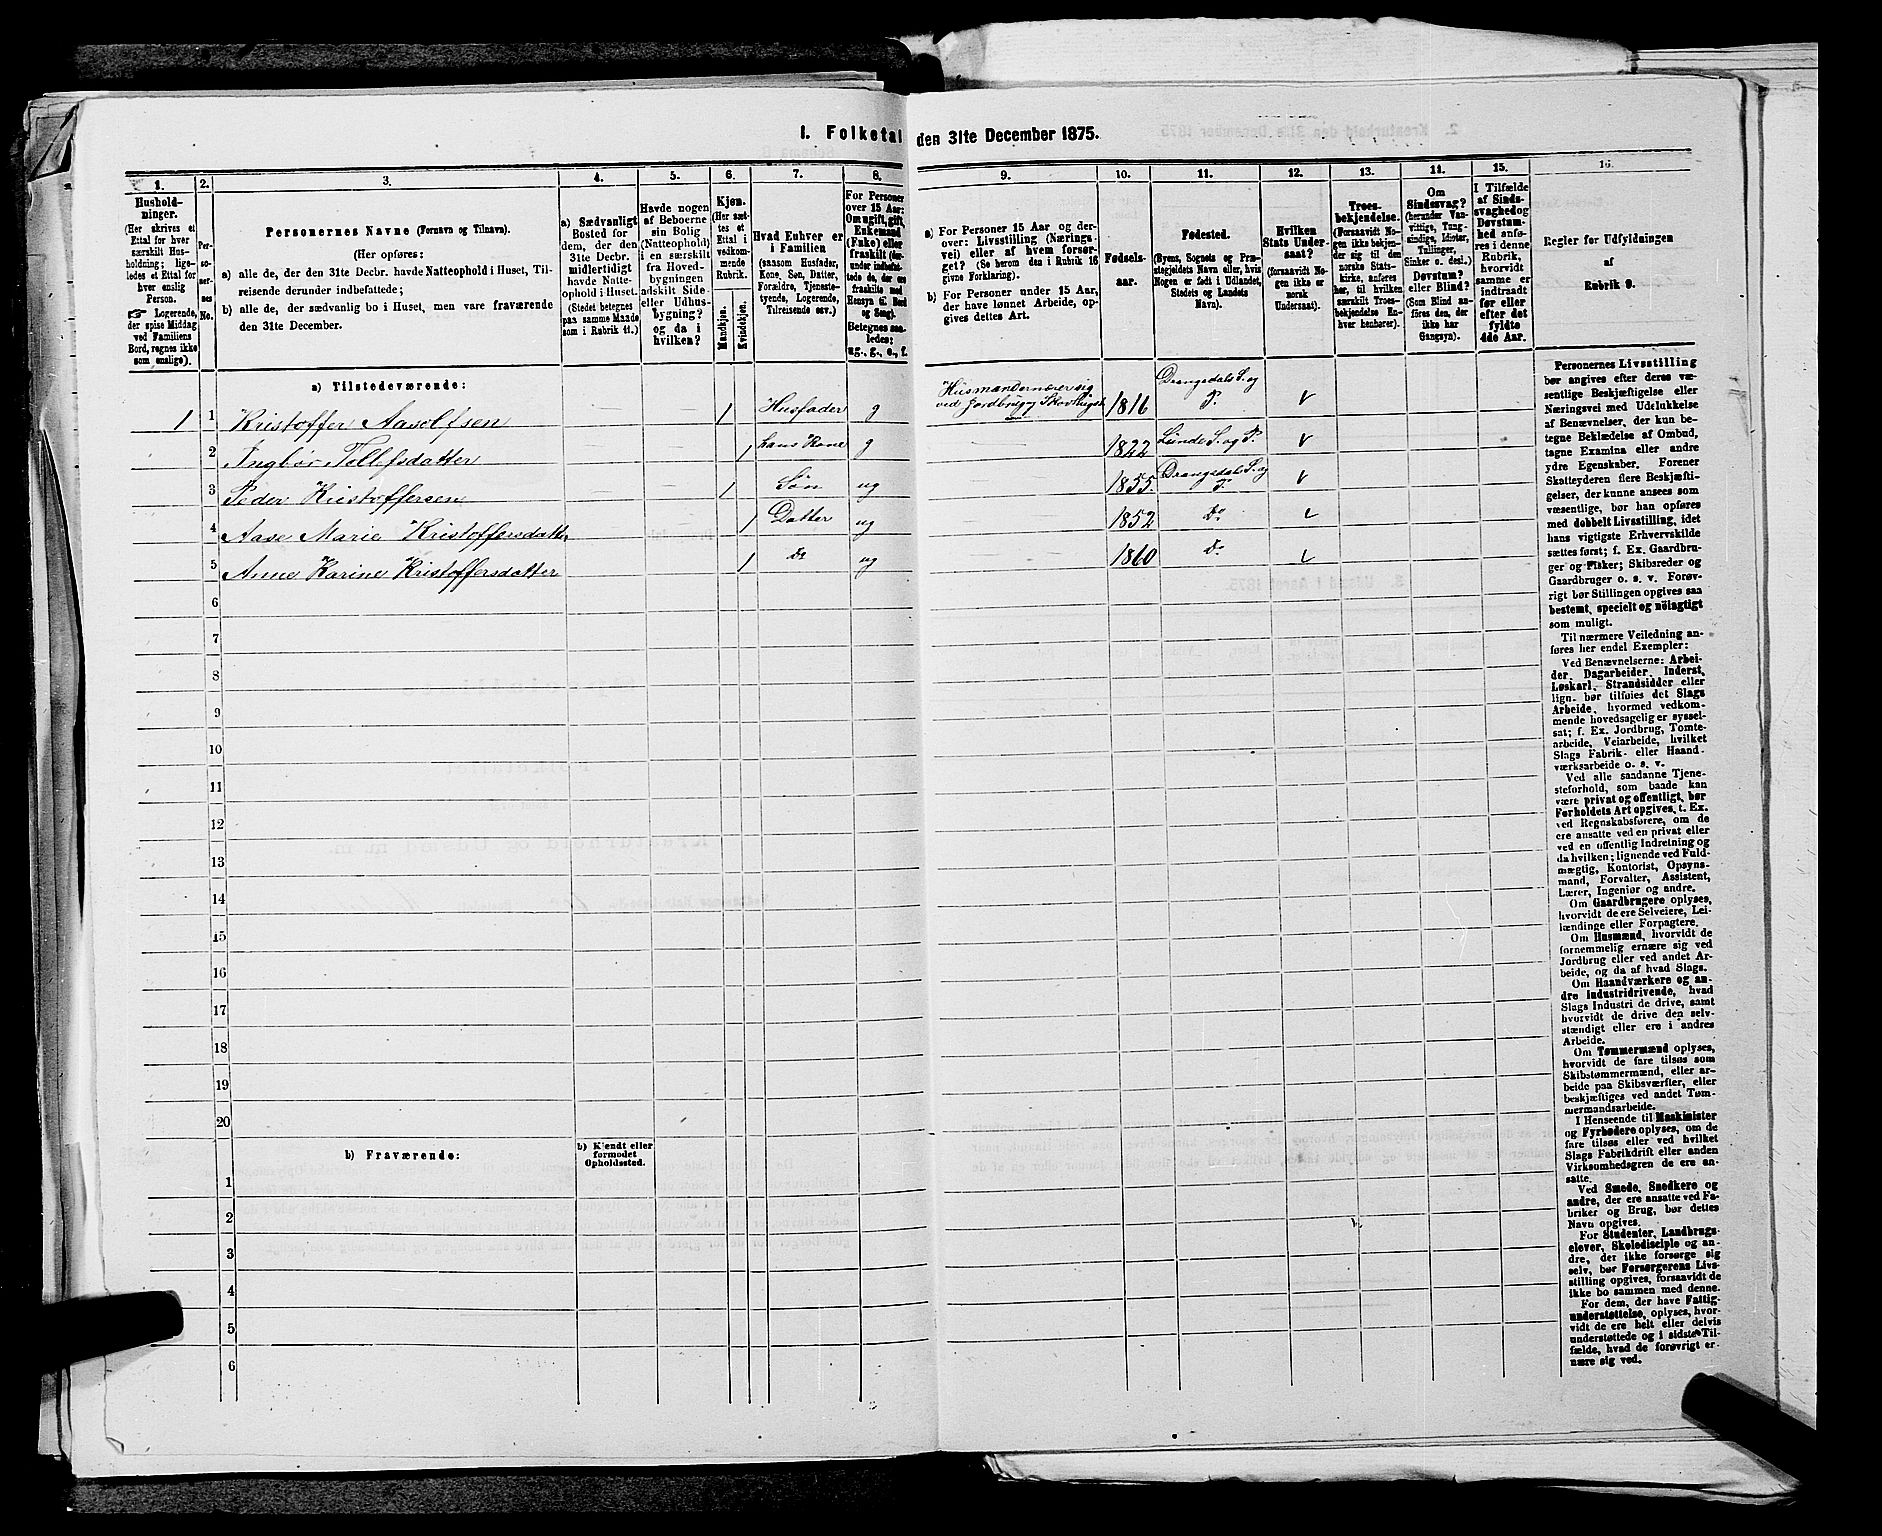 1. Folketal den 31te December 1875.
1. 2. 3. 4. 5. 6. 7. 8. 9. 10. 11. 12. 13. 14. 15. 16.
Hushold-
ninger.
(Her skrives et
Ettal for hver
særskilt Hus-
holdning; lige-
ledes et Ettal for
hver enslig
Person.
☞ Logerende,
der spise Middag
ved Familiens
Bord, regnes ikke
som enslige).
Per-
so-
ner-
nes
No.
Personernes Navne (Fornavn og Tilnavn).
(Her opføres:
a) alle de, der den 31te Decbr. havde Natteophold i Huset, Til-
reisende derunder indbefattede;
b) alle de, der sædvanlig bo i Huset, men vare fraværende
den 31te December.
a) Sædvanligt
Bosted for
dem, der den
31te Decbr.
midlertidigt
havde Natte-
ophold i Huset.
(Stedet betegnes
paa samme Maade
som i Rubrik 11.)
Havde nogen
af Beboerne
sin Bolig
(Natteophold)
i en særskilt
fra Hoved-
bygningen
adskilt Side-
eller Udhus-
bygning?
og da i
hvilken?
Kjøn.
(Her sæt-
tes et
Ettal i
vedkom-
mende
Rubrik.
Mandkjøn.
Kvindekjøn.
Hvad Enhver er
i Familien
(saasom Husfader,
Kone, Søn, Datter,
Forældre, Tjeneste-
tyende, Logerende,
Tilreisende osv.)
For Personer
over 15 Aar:
Om ugift, gift,
Enkemand
(Enke) eller
fraskilt (der-
under indbefat-
tede de, der ere
fraskilte med
Hensyn til Bord
og Seng).
Betegnes saa-
ledes:
ug., g., e., f.
a) For Personer 15 Aar og der-
over: Livsstilling (Nærings-
vei) eller af hvem forsør-
get? (Se herom den i Rubrik 16
givne Forklaring).
b) For Personer under 15 Aar,
der have lønnet Arbeide, op-
gives dettes Art.
Fødsels-
aar.
Fødested.
(Byens, Sognets og Præ-
stegjeldets Navn eller, hvis
Nogen er født i Udlandet,
Stedets og Landets
Navn).
Hvilken
Stats Under-
saat?
(forsaavidt No-
gen ikke er
norsk
Undersaat).
Troes-
bekjendelse.
(Forsaavidt No-
gen ikke bekjen-
der sig til den
norske Stats-
kirke, anføres
her, til hvilken
særskilt Troes-
bekjendelse En-
hver henhører).
Om
Sindssvag?
(herunder Van-
vittige, Tung-
sindige, Idioter,
Tullinger,
Sinker o. desl.)
Døvstum?
eller Blind?
(Som Blind an-
føres den, der
ikke har
Gangsyn).
I Tilfælde
af Sinds-
svaghed og
Døvstum-
hed anfø-
res i denne
Rubrik,
hvorvidt
samme er
indtraadt
før eller
efter det
fyldte
4de Aar.
Regler for Udfyldningen
af
Rubrik 9.
a) Tilstedeværende:
1 1 Kristoffer Aasolfsen 1 Husfader g Husmand ernærer sig ved Jordbrug og Skovhugst 1816 Drangedals S. og P. v
2 Ingbør Tellefsdatter 1 hans Kone g 1822 Lunde S. og P. v
3 Peder Kristoffersen 1 Søn ug 1855. Drangedals S. og P. v
4 Aase Marie Kristoffersdatter 1 Datter ug 1852 Do v
5 Anne Karine Kristoffersdatter 1 do ug 1860 Do v
6
7
8
9
10
11
12
13
14
15
16
17
18
19
20
b) Fraværende:
b) Kjendt eller
formodet
Opholdssted.
1
2
3
4
5
6
Personernes Livsstilling
bør angives efter deres væ-
sentlige Beskjæftigelse eller
Næringsvei med Udelukkelse
af Benævnelser, der kun be-
tegne Beklædelse af Ombud,
tagne Examina eller andre
ydre Egenskaber. Forener
Skatteyderen flere Beskjæfti-
gelser, der kunne ansees som
væsentlige, bør han opføres
med dobbelt Livsstilling, idet
hans vigtigste Erhvervskilde
sættes først; f. Ex. Gaardbru-
ger og Fisker; Skibsreder og
Gaardbruger o. s. v. Forøv-
rigt bør Stillingen opgives saa
bestemt, specielt og nöiagtigt
som muligt.
Til nærmere Veiledning an-
føres her endel Exempler:
Ved Benævnelserne: Arbei-
der, Dagarbeider, Inderst,
Løskarl, Strandsidder eller
lign. bør tilføies det Slags
Arbeide, hvormed vedkom-
mende hovedsagelig er syssel-
sat; f. Ex. Jordbrug, Tomte-
arbeide, Veiarbeide, hvilket
Slags Fabrik- eller Haand-
værksarbeide o. s. v.
Ved alle saadanne Tjene-
steforhold, som baade kan
være privat og offentligt, bør
Forholdets Art opgives, t. Ex.
ved Regnskabsførere, om de
ere ansatte ved en privat eller
ved en offentlig Indretning og
da hvilken; lignende ved Fuld-
mægtig, Kontorist, Opsyns-
mand, Forvalter, Assistent,
Lærer, Ingeniør og andre.
Om Gaardbrugere oplyses,
hvorvidt de ere Selveiere, Lei-
lændinge eller Forpagtere.
Om Husmænd, hvorvidt de
fornemmelig ernære sig ved
Jordbrug eller ved andet Ar-
beide, og da af hvad Slags.
Om Haandværkere og an-
dre Industridrivende, hvad
Slags Industri de drive, samt
hvorvidt de drive den selv-
stændigt eller ere i andres
Arbeide.
Om Tømmermænd oplyses,
hvorvidt de fare tilsøs som
Skibstømmermænd, eller ar-
beide paa Skibsværfter, eller
beskjæftiges ved andet Tøm-
mermandsarbeide.
I Henseende til Maskinister
og Fyrbødere oplyses, om de
fare tilsøs eller ved hvilket
Slags Fabrikdrift eller anden
Virksomhedsgren de ere an-
satte.
Ved Smede, Snedkere og
andre, der ere ansatte ved Fa-
briker og Brug, bør dettes
Navn opgives.
For Studenter, Landbrugs-
elever, Skoledisciple og an-
dre, der ikke forsørge sig
selv, bør Forsørgerens Livs-
stilling opgives, forsaavidt de
ikke bo sammen med denne.
For dem, der have Fattig-
understøttelse, oplyses, hvor-
vidt de ere helt eller delvis
understøttede og i sidste Til-
fælde, hvad de forøvrigt er-
nære sig ved.